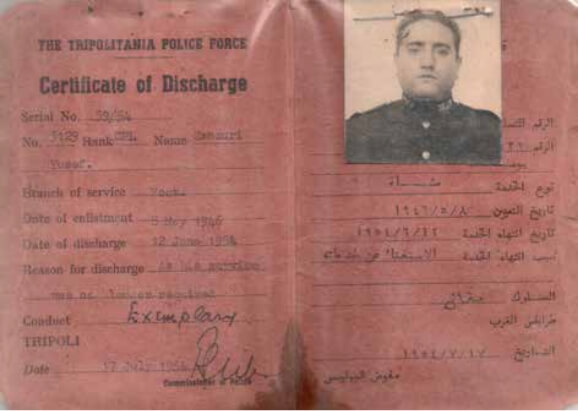 THE TRIPOLITANIA POLICE FORCE
Certificate of Discharge
Serial No. 59/54
No. 5129 Rank CPL. Name
Yusef.
Branch of service Foot.
Date of enlistment 8 May 1946
Date of discharge 12 June 1954
Reason for discharge As his service
was no longer required
Conduct Exemplary
TRIPOLI
Date 17 July 1954
Commissioner of Police
الرقم
الرقم
نوع الخدمة مشاة
تاريخ التعيين ١٩٤٦/٥/٨
تاريخ انتهاء الخدمة ١٩٥٤/٦/١٢
سبب انتهاء الخدمة الاستغناء عن خدماته
السلوك مثالي
طرابلس الغرب
التاريخ ١٩٥٤/٧/١٧
مفوض البوليس